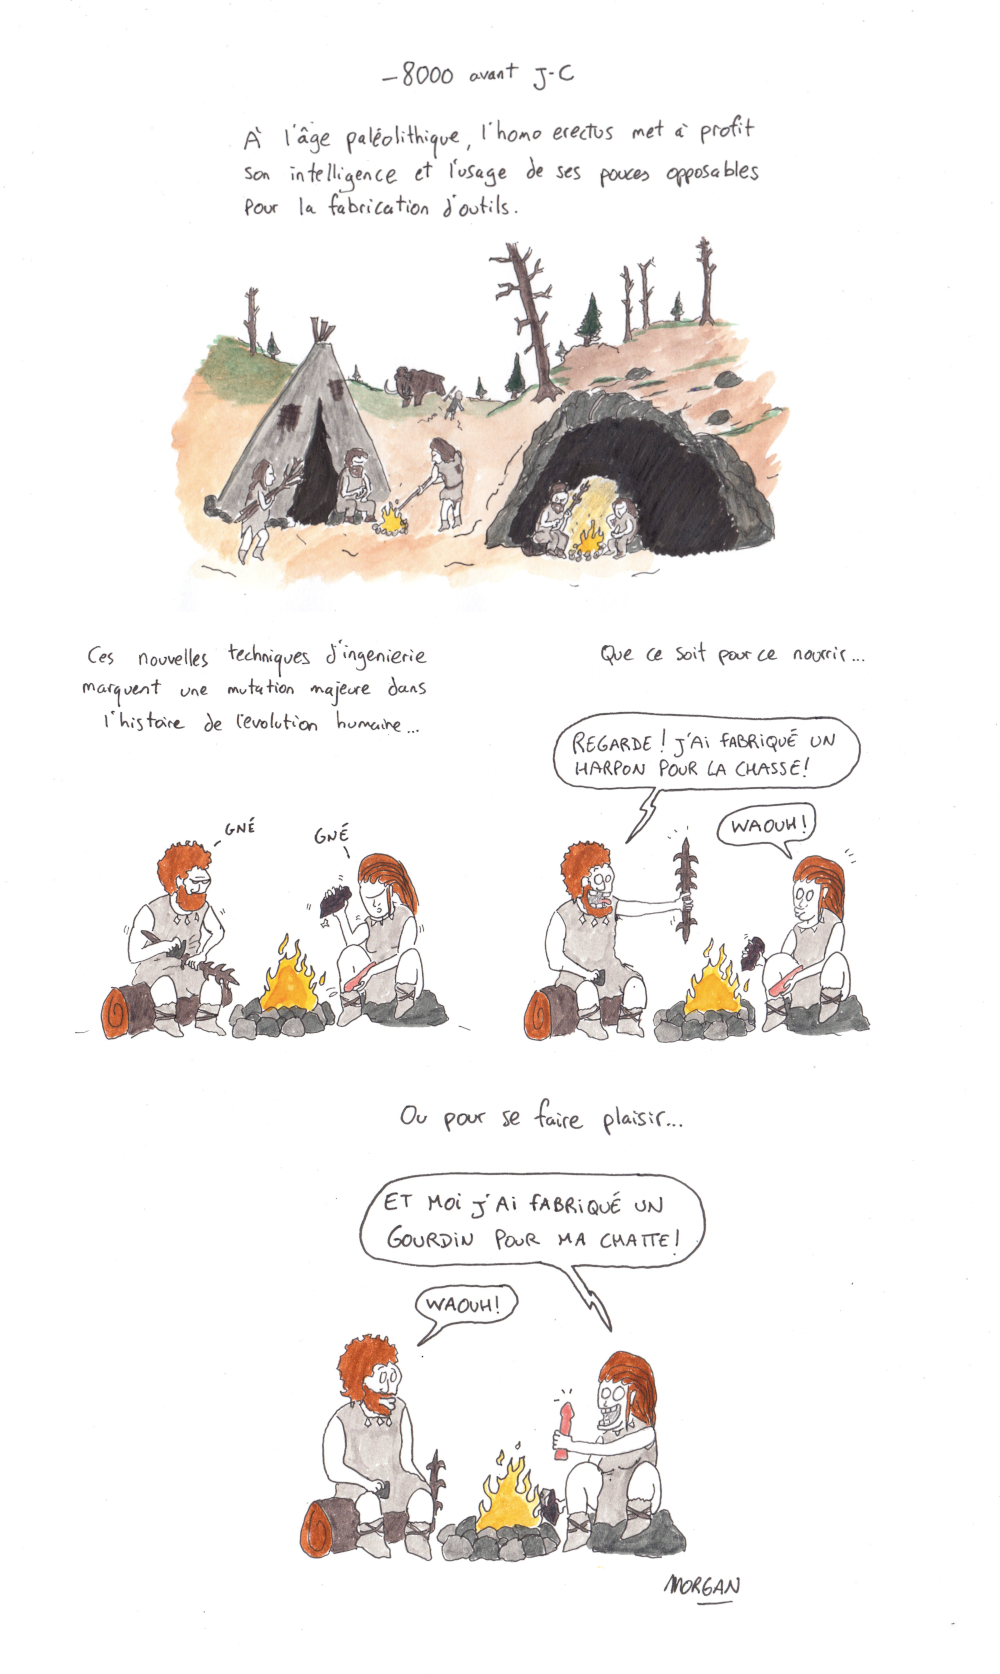 -8000 avant J-C
À l'âge paléolithique, l'homo erectus met à profit
son intelligence et l'usage de ses pouces opposables
pour la fabrication d'outils.
Ces nouvelles techniques d'ingenierie
marquent une mutation majeure dans
l'histoire de l'evolution humaine...
GNÉ
GNÉ
Que ce soit pour ce nourrir...
REGARDE ! J'AI FABRIQUÉ UN
HARPON POUR LA CHASSE !
WAOUH !
Ou pour se faire plaisir...
ET MOI J'AI FABRIQUÉ UN
GOURDIN POUR MA CHATTE !
WAOUH !
MORGAN